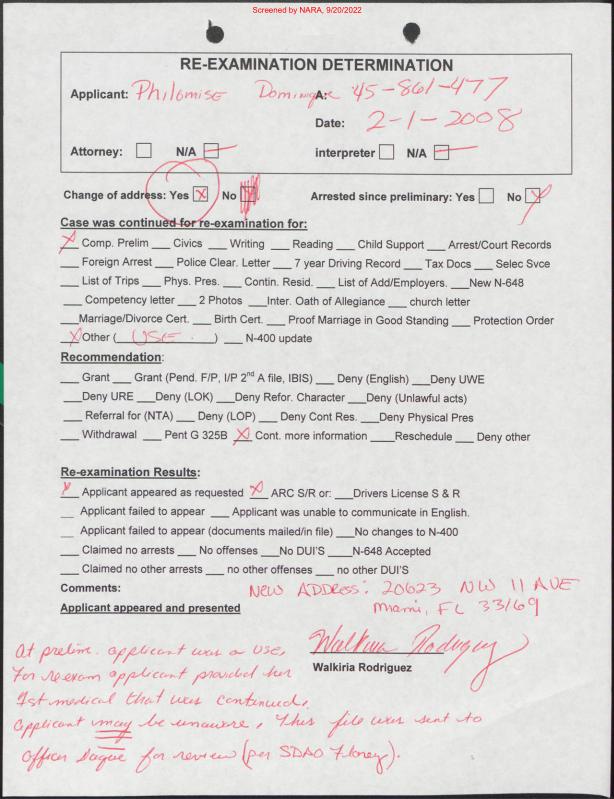 Screened by NARA, 9/20/2022
RE-EXAMINATION DETERMINATION
Applicant: Philomise Dominique A: 45-861-477
Date: 2-1-2008
Attorney: N/A interpreter N/A
Change of address: Yes X No Arrested since preliminary: Yes No X
Case was continued for re-examination for:
X Comp. Prelim ___ Civics ___ Writing ___ Reading ___ Child Support ___ Arrest/Court Records
___ Foreign Arrest ___ Police Clear. Letter ___ 7 year Driving Record ___ Tax Docs ___ Selec Svce
___ List of Trips ___ Phys. Pres. ___ Contin. Resid. ___ List of Add/Employers. ___New N-648
___ Competency letter ___ 2 Photos ___Inter. Oath of Allegiance ___ church letter
___Marriage/Divorce Cert. ___ Birth Cert. ___ Proof Marriage in Good Standing ___ Protection Order
X Other ( USE ) ___ N-400 update
Recommendation:
___ Grant ___ Grant (Pend. F/P, I/P 2nd A file, IBIS) ___ Deny (English) ___Deny UWE
___Deny URE ___Deny (LOK) ___Deny Refor. Character ___Deny (Unlawful acts)
___ Referral for (NTA) ___ Deny (LOP) ___ Deny Cont Res. ___Deny Physical Pres
___ Withdrawal ___ Pent G 325B X Cont. more information ____Reschedule ___ Deny other
Re-examination Results:
X Applicant appeared as requested X ARC S/R or: ___Drivers License S & R
__ Applicant failed to appear ___ Applicant was unable to communicate in English.
__ Applicant failed to appear (documents mailed/in file) ___No changes to N-400
___ Claimed no arrests ___ No offenses ___No DUI'S ___N-648 Accepted
___ Claimed no other arrests ___ no other offenses ___ no other DUI'S
Comments: New Address: 20623 NW 11 AVE
Miami, FL 33169
Applicant appeared and presented
Walkiria Rodriguez
Walkiria Rodriguez
At prelim. applicant was a USE,
For reexam applicant provided her
1st medical that was continued.
applicant may be unaware, this file was sent to
officer for review (per SDAO).